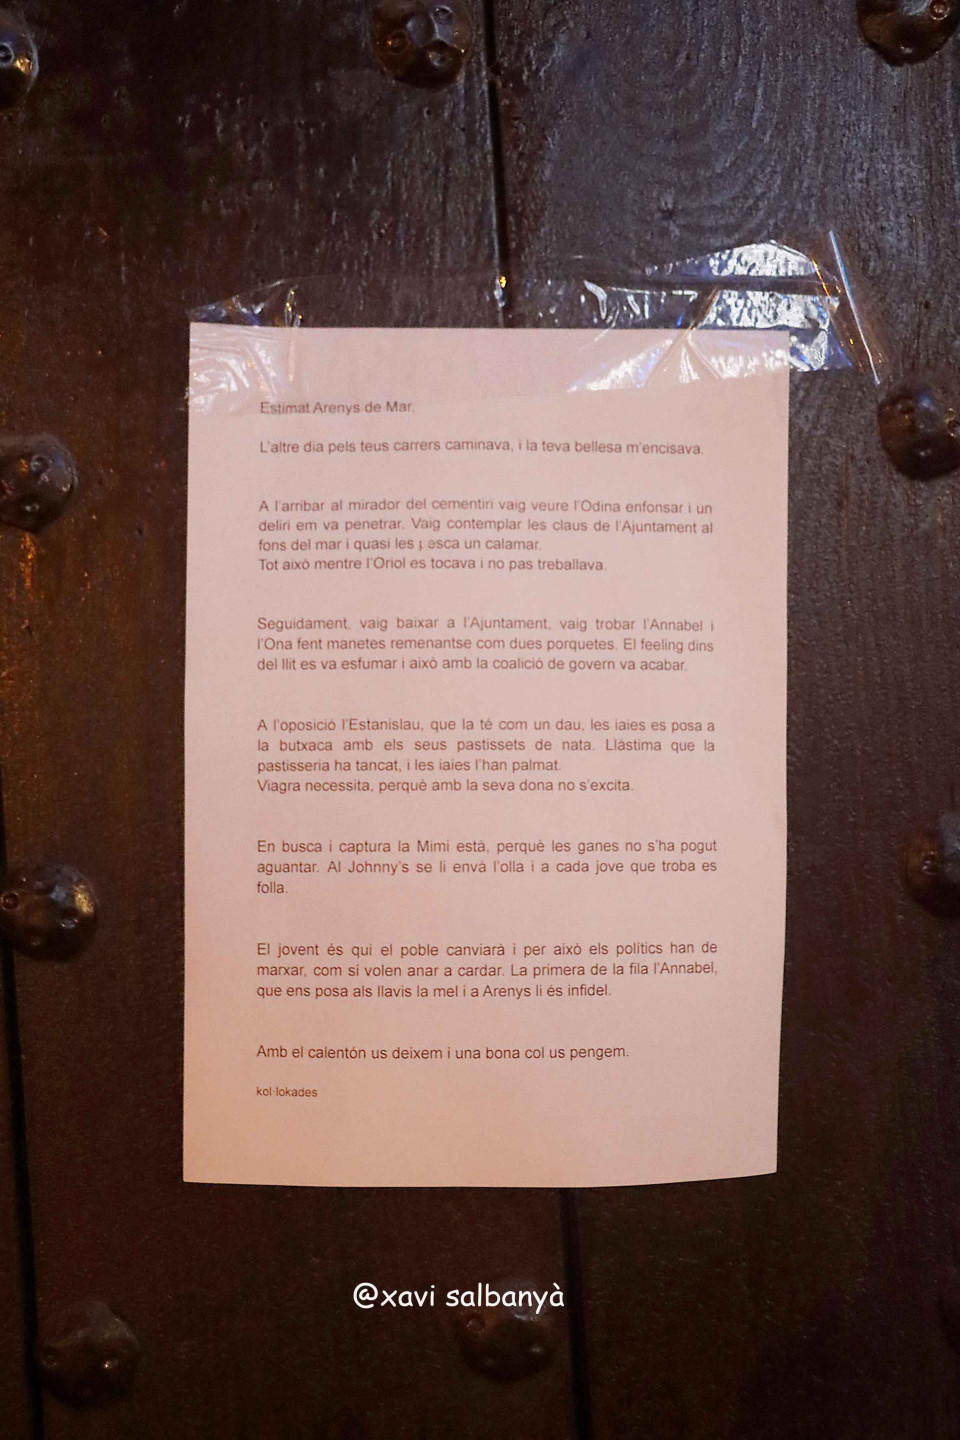 Estimat Arenys de Mar,
L'altre dia pels teus carrers caminava, i la teva bellesa m'encisava.
A l'arribar al mirador del cementiri vaig veure l'Odina enfonsar i un
deliri em va penetrar. Vaig contemplar les claus de l'Ajuntament al
fons del mar i quasi les pesca un calamar.
Tot això mentre l'Oriol es tocava i no pas treballava.
Seguidament, vaig baixar a l'Ajuntament, vaig trobar l'Annabel i
l'Ona fent manetes remenantse com dues porquetes. El feeling dins
del llit es va esfumar i això amb la coalició de govern va acabar.
A l'oposició l'Estanislau, que la té com un dau, les iaies es posa a
la butxaca amb els seus pastissets de nata. Llàstima que la
pastisseria ha tancat, i les iaies l'han palmat.
Viagra necessita, perquè amb la seva dona no s'excita.
En busca i captura la Mimi està, perquè les ganes no s'ha pogut
aguantar. Al Johnny's se li envà l'olla i a cada jove que troba es
folla.
El jovent és qui el poble canviarà i per això els polítics han de
marxar, com si volen anar a cardar. La primera de la fila l'Annabel,
que ens posa als llavis la mel i a Arenys li és infidel.
Amb el calentón us deixem i una bona col us pengem.
kol·lokades
@xavi salbanyà